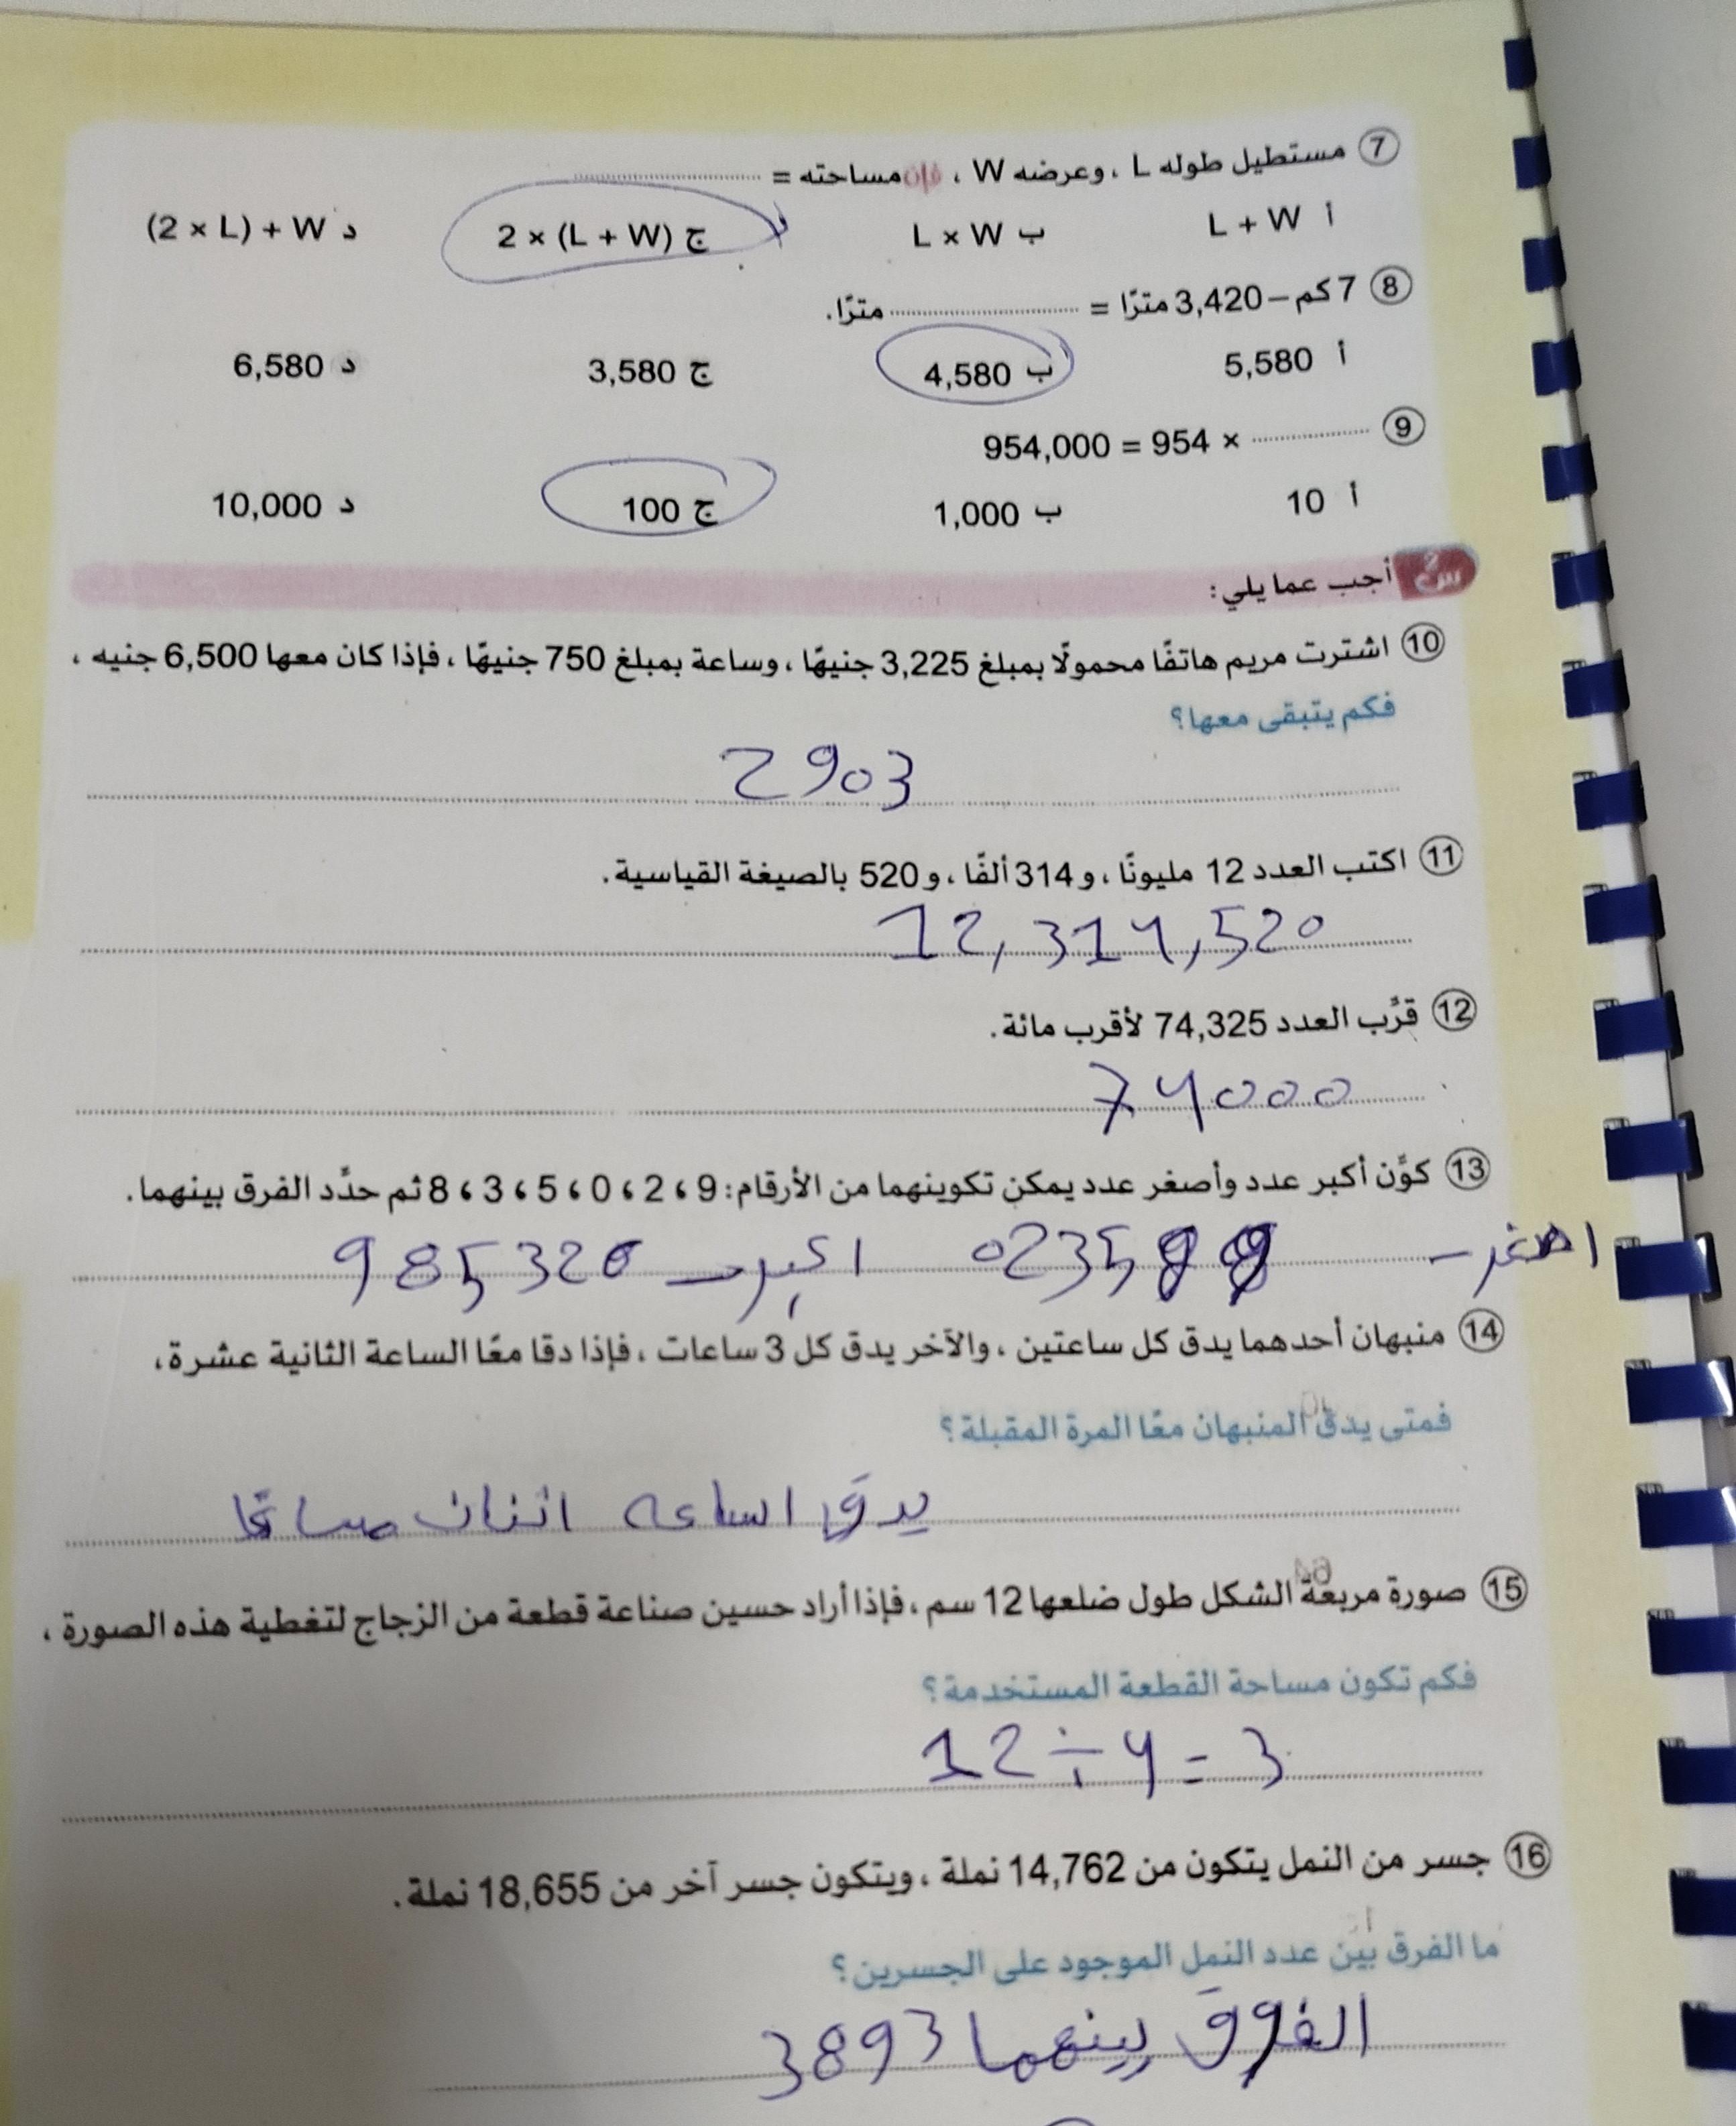 7 مستطيل طوله L ، وعرضه W ، فإن مساحته = ........................
أ L + W ب L × W ج 2 × (L + W) د (2 × L) + W
8 7 كم – 3,420 مترًا = ........................ مترًا.
أ 5,580 ب 4,580 ج 3,580 د 6,580
9 ............... × 954 = 954,000
أ 10 ب 1,000 ج 100 د 10,000
س2 أجب عما يلي:
10 اشترت مريم هاتفًا محمولًا بمبلغ 3,225 جنيهًا ، وساعة بمبلغ 750 جنيهًا ، فإذا كان معها 6,500 جنيه ،
فكم يتبقى معها؟
2903
11 اكتب العدد 12 مليونًا ، و 314 ألفًا ، و 520 بالصيغة القياسية.
12,314,520
12 قرِّب العدد 74,325 لأقرب مائة.
74000
13 كوِّن أكبر عدد وأصغر عدد يمكن تكوينهما من الأرقام: 9 ، 2 ، 0 ، 5 ، 3 ، 8 ثم حدِّد الفرق بينهما.
اصغر – 023589 اكبر – 985320
14 منبهان أحدهما يدق كل ساعتين ، والآخر يدق كل 3 ساعات ، فإذا دقا معًا الساعة الثانية عشرة،
فمتى يدق المنبهان معًا المرة المقبلة؟
يدق الساعه اثنان صباحًا
15 صورة مربعة الشكل طول ضلعها 12 سم ، فإذا أراد حسين صناعة قطعة من الزجاج لتغطية هذه الصورة ،
فكم تكون مساحة القطعة المستخدمة؟
12 ÷ 4 = 3
16 جسر من النمل يتكون من 14,762 نملة ، ويتكون جسر آخر من 18,655 نملة.
ما الفرق بين عدد النمل الموجود على الجسرين؟
الفرق بينهما 3893